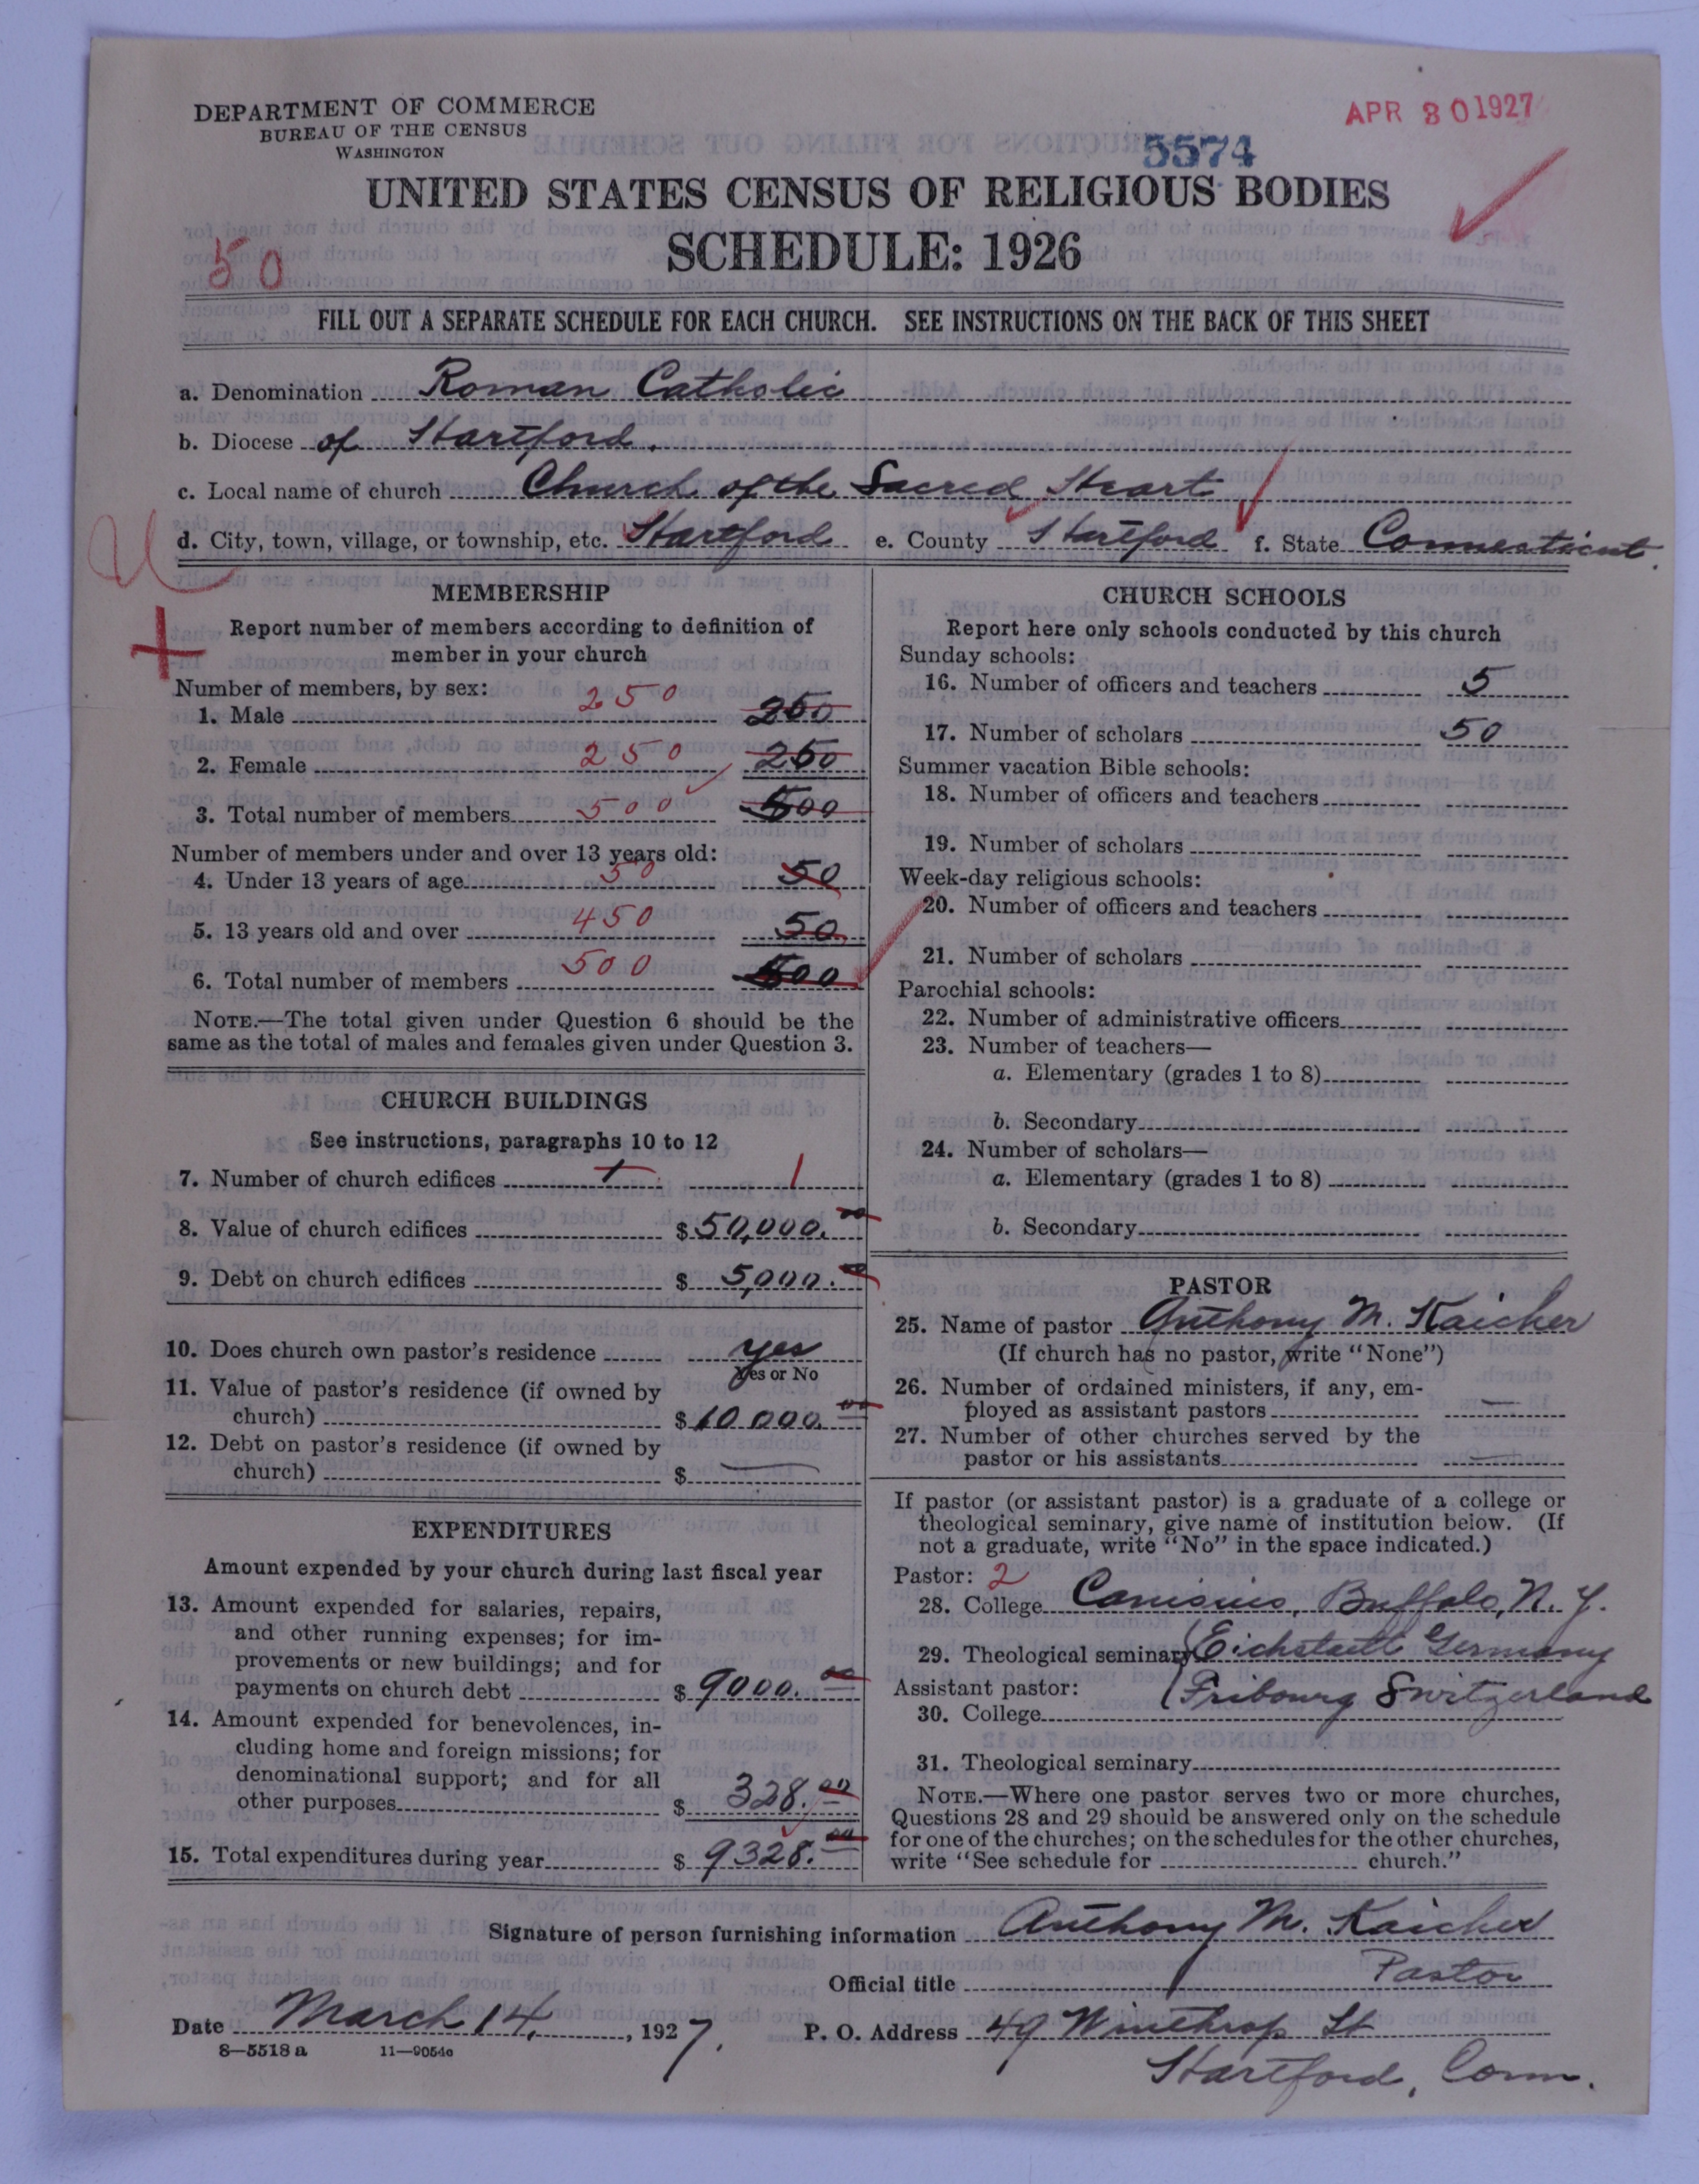 DEPARTMENT OF COMMERCE
BUREAU OF THE CENSUS
WASHINGTON
APR 30 1927
5574
UNITED STATES CENSUS OF RELIGIOUS BODIES
SCHEDULE: 1926
50
FILL OUT A SEPARATE SCHEDULE FOR EACH CHURCH. SEE INSTRUCTIONS ON THE BACK OF THIS SHEET
a. Denomination Roman Catholic
b. Diocese of Hartford.
c. Local name of church Church of the Sacred Heart
d. City, town, village, or township, etc. Hartford e. County Hartford f. State Connecticut.
MEMBERSHIP
Report number of members according to definition of
member in your church
Number of members, by sex:
1. Male 250 250
2. Female 250 250
3. Total number of members 500 500
Number of members under and over 13 years old:
4. Under 13 years of age 50 50
5. 13 years old and over 450 50
6. Total number of members 500 500
NOTE.—The total given under Question 6 should be the
same as the total of males and females given under Question 3.
CHURCH BUILDINGS
See instructions, paragraphs 10 to 12
7. Number of church edifices 1 1
8. Value of church edifices $50,000.00
9. Debt on church edifices $ 5,000.00
10. Does church own pastor's residence yes
Yes or No
11. Value of pastor's residence (if owned by
church) $10.000.00
12. Debt on pastor's residence (if owned by
church) $ —
EXPENDITURES
Amount expended by your church during last fiscal year
13. Amount expended for salaries, repairs,
and other running expenses; for im-
provements or new buildings; and for
payments on church debt $ 9000.00
14. Amount expended for benevolences, in-
cluding home and foreign missions; for
denominational support; and for all
other purposes $ 328.00
15. Total expenditures during year $ 9328.00
CHURCH SCHOOLS
Report here only schools conducted by this church
Sunday schools:
16. Number of officers and teachers 5
17. Number of scholars 50
Summer vacation Bible schools:
18. Number of officers and teachers
19. Number of scholars
Week-day religious schools:
20. Number of officers and teachers
21. Number of scholars
Parochial schools:
22. Number of administrative officers
23. Number of teachers—
a. Elementary (grades 1 to 8)
b. Secondary
24. Number of scholars—
a. Elementary (grades 1 to 8)
b. Secondary
PASTOR
25. Name of pastor Anthony M. Kaicher
(If church has no pastor, write "None")
26. Number of ordained ministers, if any, em-
ployed as assistant pastors —
27. Number of other churches served by the
pastor or his assistants —
If pastor (or assistant pastor) is a graduate of a college or
theological seminary, give name of institution below. (If
not a graduate, write "No" in the space indicated.)
Pastor: 2
28. College Canisius, Buffalo, N. Y.
29. Theological seminary Eichstaett Germany
Assistant pastor: Fribourg Switzerland
30. College
31. Theological seminary
NOTE.—Where one pastor serves two or more churches,
Questions 28 and 29 should be answered only on the schedule
for one of the churches; on the schedules for the other churches,
write "See schedule for church."
Signature of person furnishing information Anthony M. Kaicher
Official title Pastor
Date March 14, 1927. P. O. Address 49 Winthrop St
8—5518 a 11—9054a
Hartford, Conn.